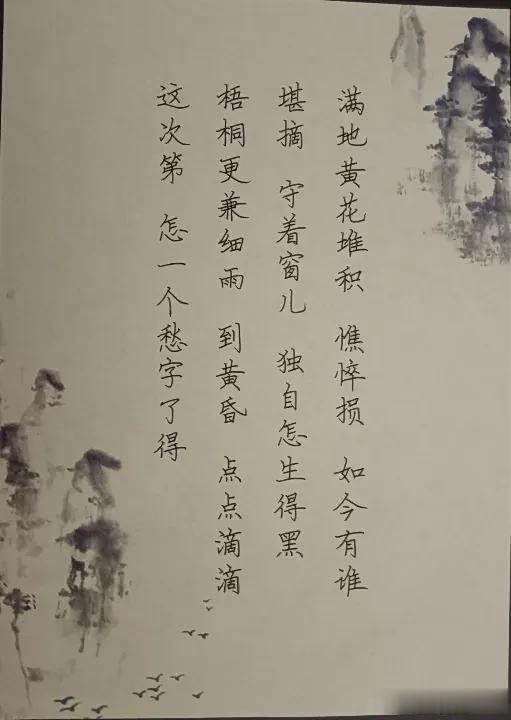 满地黄花堆积 憔悴损 如今有谁
堪摘 守着窗儿 独自怎生得黑
梧桐更兼细雨 到黄昏 点点滴滴
这次第 怎一个愁字了得